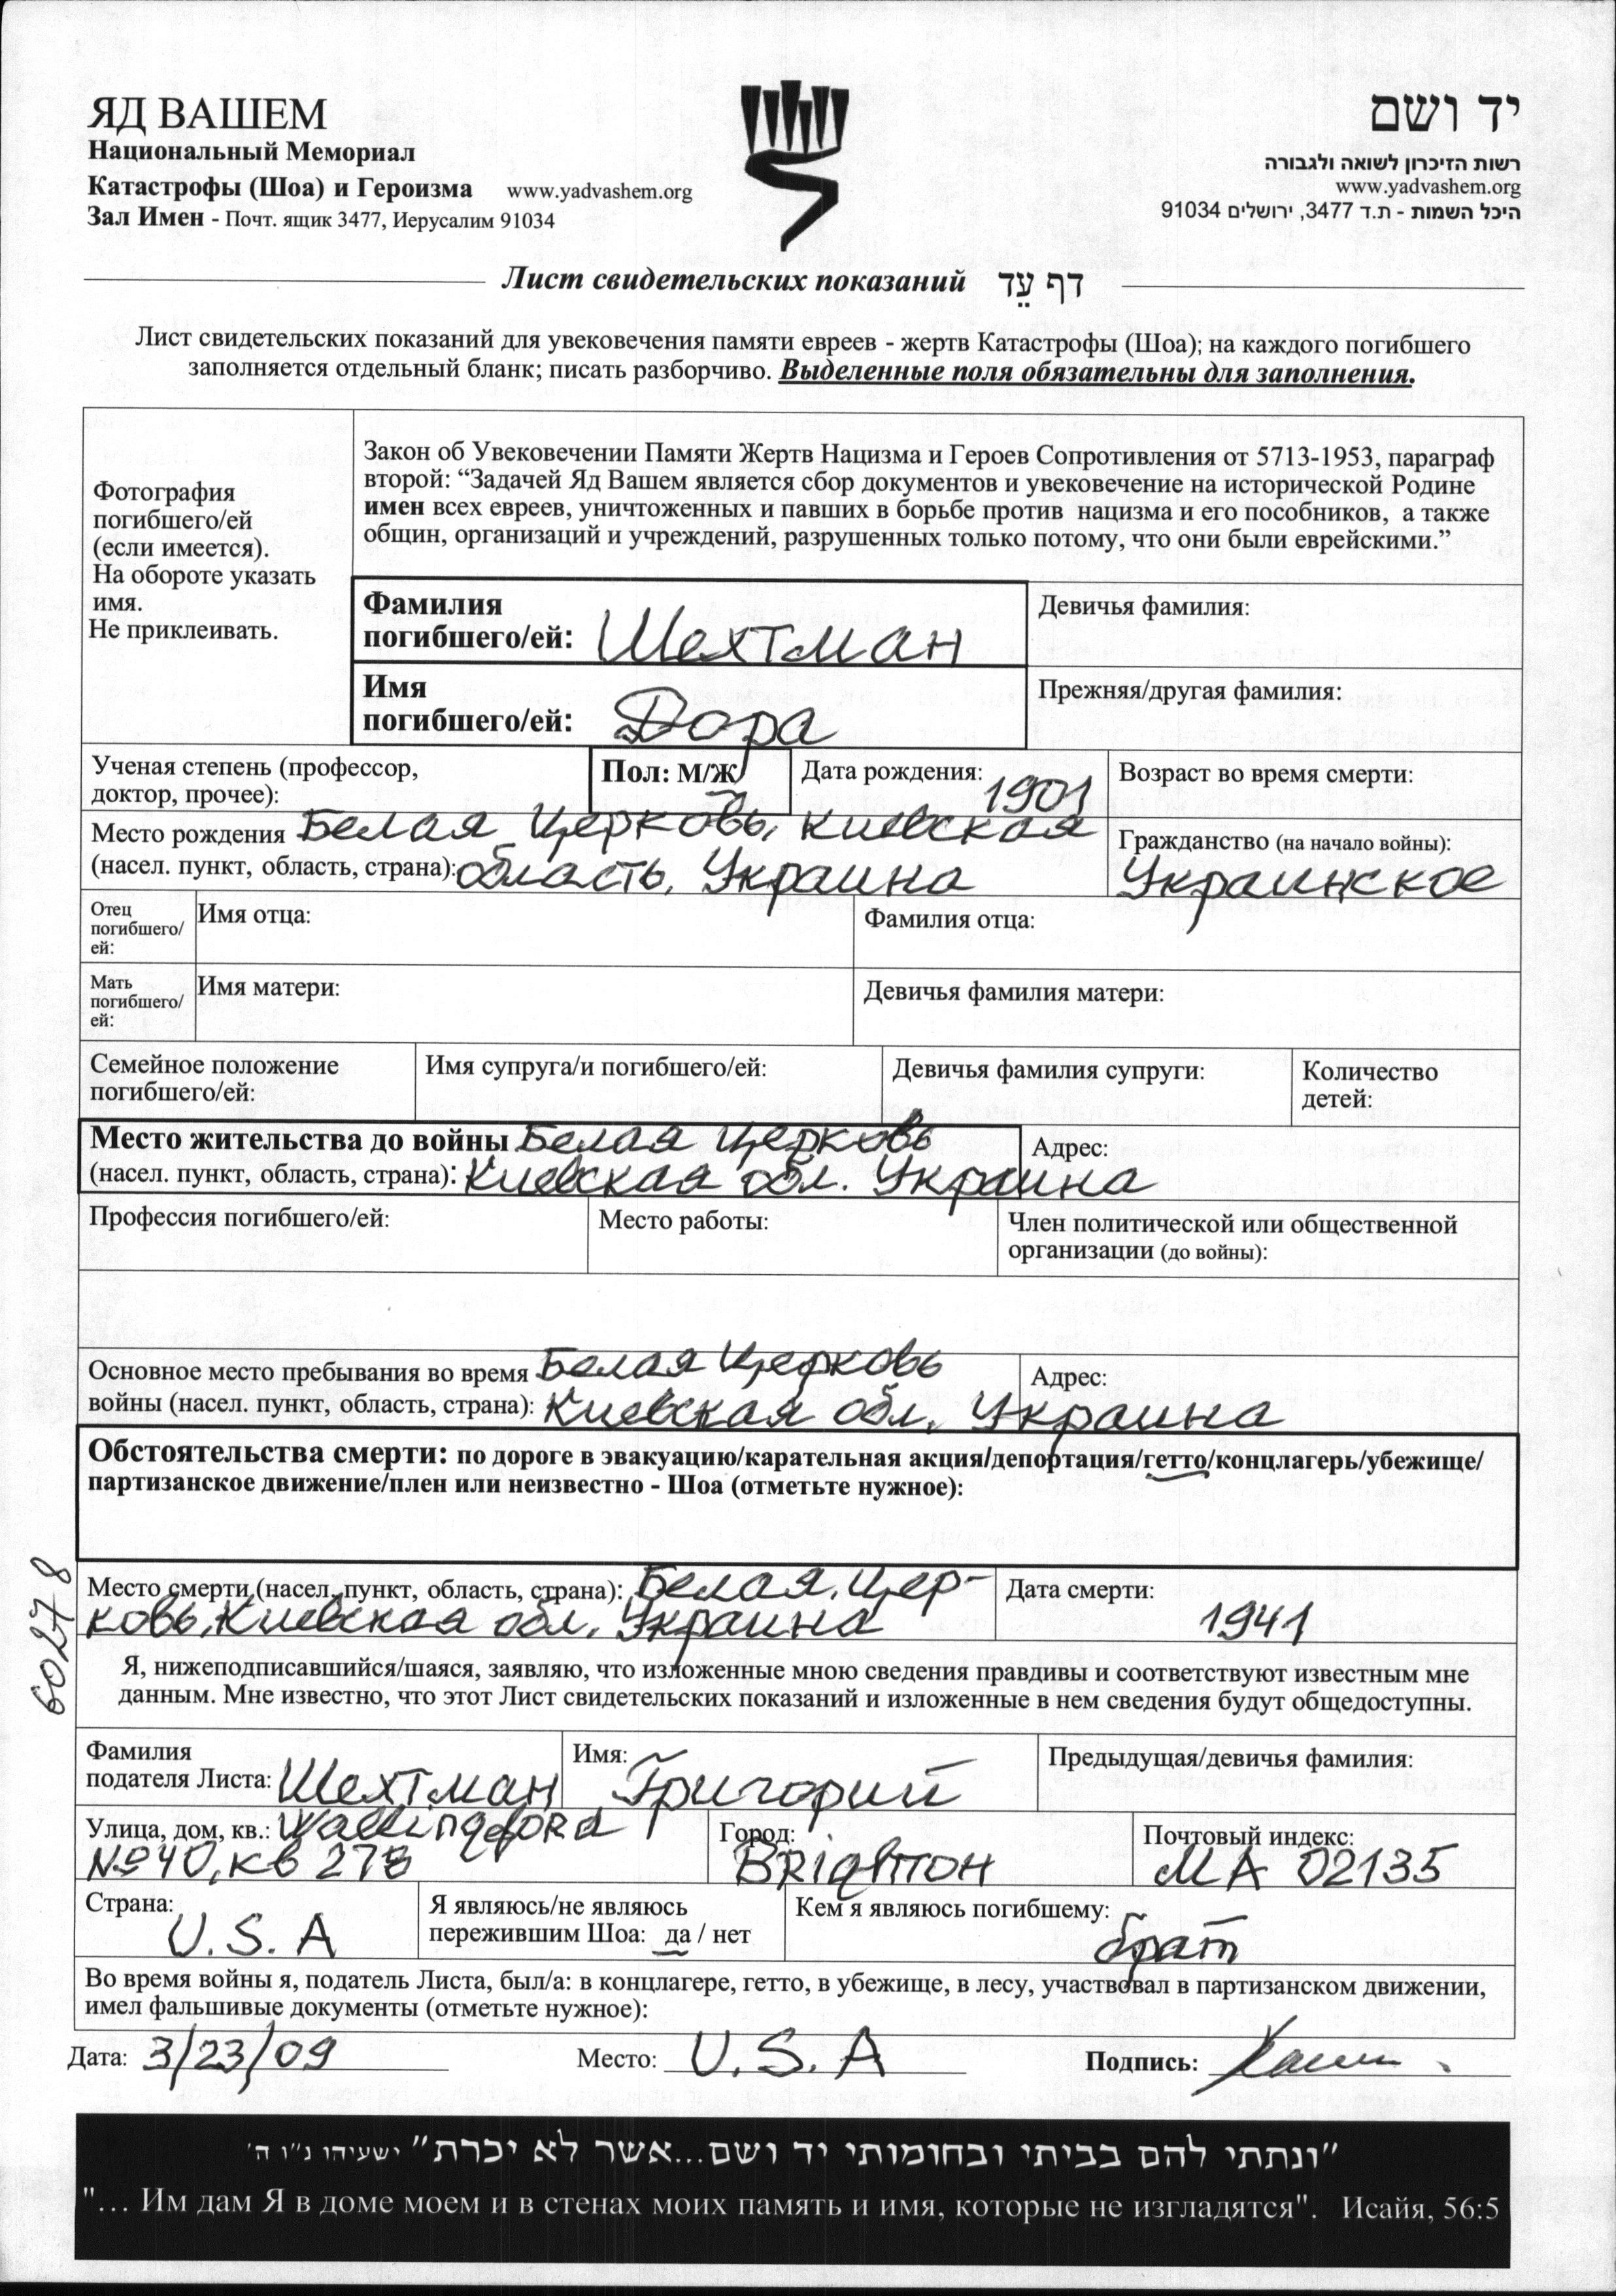 ЯД ВАШЕМ
Национальный Мемориал
Катастрофы (Шоа) и Героизма www.yadvashem.org
Зал Имен - Почт. ящик 3477, Иерусалим 91034
יד ושם
רשות הזיכרון לשואה ולגבורה
www.yadvashem.org
היכל השמות - ת.ד 3477, ירושלים 91034
Лист свидетельских показаний דף עֵד
Лист свидетельских показаний для увековечения памяти евреев - жертв Катастрофы (Шоа); на каждого погибшего
заполняется отдельный бланк; писать разборчиво. Выделенные поля обязательны для заполнения.
Фотография
погибшего/ей
(если имеется).
На обороте указать
имя.
Не приклеивать.
Закон об Увековечении Памяти Жертв Нацизма и Героев Сопротивления от 5713-1953, параграф
второй: “Задачей Яд Вашем является сбор документов и увековечение на исторической Родине
имен всех евреев, уничтоженных и павших в борьбе против нацизма и его пособников, а также
общин, организаций и учреждений, разрушенных только потому, что они были еврейскими.”
Фамилия
погибшего/ей: Шехтман
Девичья фамилия:
Имя
погибшего/ей: Дора
Прежняя/другая фамилия:
Ученая степень (профессор,
доктор, прочее):
Пол: М/Ж
Дата рождения: 1901
Возраст во время смерти:
Место рождения Белая Церковь, Киевская
(насел. пункт, область, страна): область, Украина
Гражданство (на начало войны):
Украинское
Отец
погибшего/
ей:
Имя отца:
Фамилия отца:
Мать
погибшего/
ей:
Имя матери:
Девичья фамилия матери:
Семейное положение
погибшего/ей:
Имя супруга/и погибшего/ей:
Девичья фамилия супруги:
Количество
детей:
Место жительства до войны Белая Церковь
(насел. пункт, область, страна): Киевская обл. Украина
Адрес:
Профессия погибшего/ей:
Место работы:
Член политической или общественной
организации (до войны):
Основное место пребывания во время Белая Церковь
войны (насел. пункт, область, страна): Киевская обл. Украина
Адрес:
Обстоятельства смерти: по дороге в эвакуацию/карательная акция/депортация/гетто/концлагерь/убежище/
партизанское движение/плен или неизвестно - Шоа (отметьте нужное):
60278
Место смерти (насел. пункт, область, страна): Белая Цер-
ковь, Киевская обл. Украина
Дата смерти:
1941
Я, нижеподписавшийся/шаяся, заявляю, что изложенные мною сведения правдивы и соответствуют известным мне
данным. Мне известно, что этот Лист свидетельских показаний и изложенные в нем сведения будут общедоступны.
Фамилия
подателя Листа: Шехтман
Имя: Григорий
Предыдущая/девичья фамилия:
Улица, дом, кв.: Wallingford
№40, кв 27B
Город:
Brighton
Почтовый индекс:
MA 02135
Страна:
U.S.A
Я являюсь/не являюсь
пережившим Шоа: да / нет
Кем я являюсь погибшему:
брат
Во время войны я, податель Листа, был/а: в концлагере, гетто, в убежище, в лесу, участвовал в партизанском движении,
имел фальшивые документы (отметьте нужное):
Дата: 3/23/09 Место: U.S.A Подпись:
"ונתתי להם בביתי ובחומותי יד ושם...אשר לא יכרת" ישעיהו נ"ו ה'
"... Им дам Я в доме моем и в стенах моих память и имя, которые не изгладятся". Исайя, 56:5